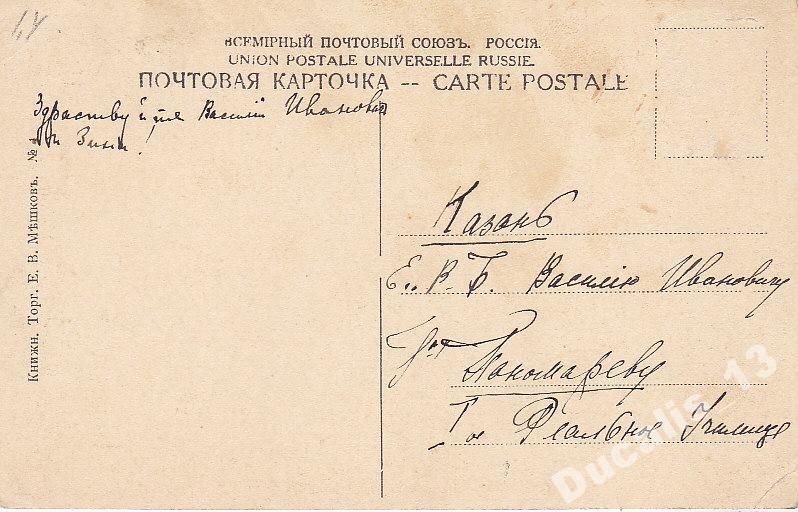 ВСЕМІРНЫЙ ПОЧТОВЫЙ СОЮЗЪ. РОССІЯ.
UNION POSTALE UNIVERSELLE RUSSIE.
ПОЧТОВАЯ КАРТОЧКА -- CARTE POSTALE
Здраствуйте Василій Иванови
Зины!
Книжн. Торг. Е. В. Мѣшковъ. №
Казань
Е. В. Б. Василію Ивановичу
Пономареву
I ое Реальное Училище
Ducalis_13